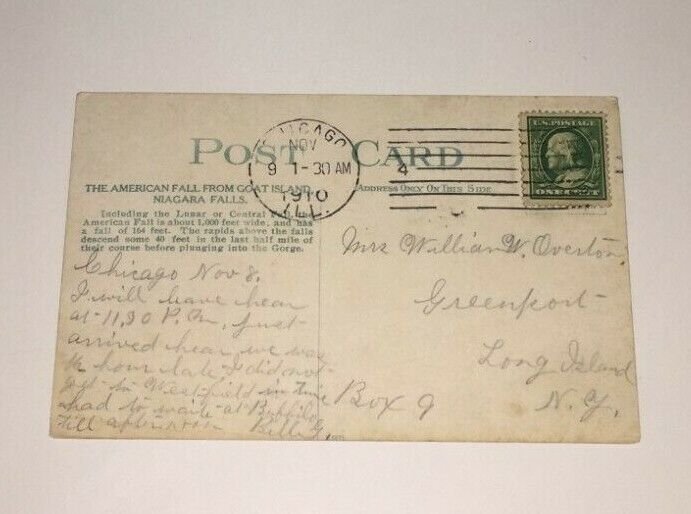 POST CARD
CHICAGO
NOV
9 1-30 AM
1910
ILL.
4
U.S. POSTAGE
ONE CENT
THE AMERICAN FALL FROM GOAT ISLAND,
NIAGARA FALLS.
ADDRESS ONLY ON THIS SIDE
Including the Lunar or Central Fall the
American Fall is about 1,000 feet wide, and has
a fall of 164 feet. The rapids above the falls
descend some 40 feet in the last half mile of
their course before plunging into the Gorge.
Chicago Nov 8.
I will leave hear
at 11,30 P.M, just
arrived hear, we was
½ hour late I did not
get to Westfield in time
had to waite at Buffilo
till afternoon
Mrs William W. Overton.
Greenport
Long Island
Box 9 N.Y.